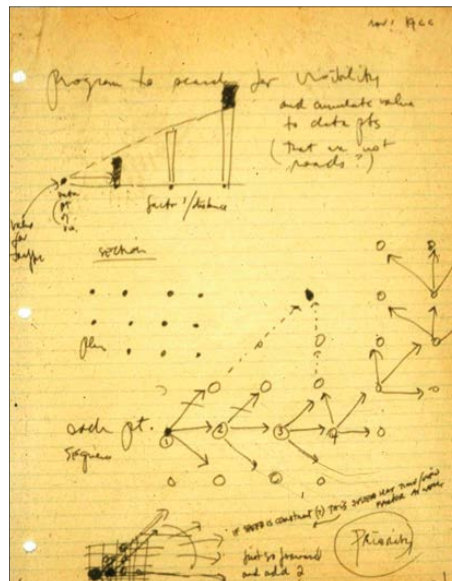 Nov. 1966
program to search for visibility
and cumulate value
to data pts
(that are not
roads?)
data
pt
value
for
factor 1/distance
section
plan
each pt.
1 2 3 4
sequence
if speed is constant (?) this
just go forward
and add 2
Priority